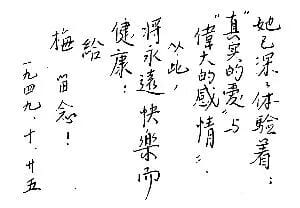 她已深深体验着:
"真实的愛"与
"偉大的感情"。
以此,
将永遠快樂而
健康!
給
梅 留念!
一九四九、十、廿五